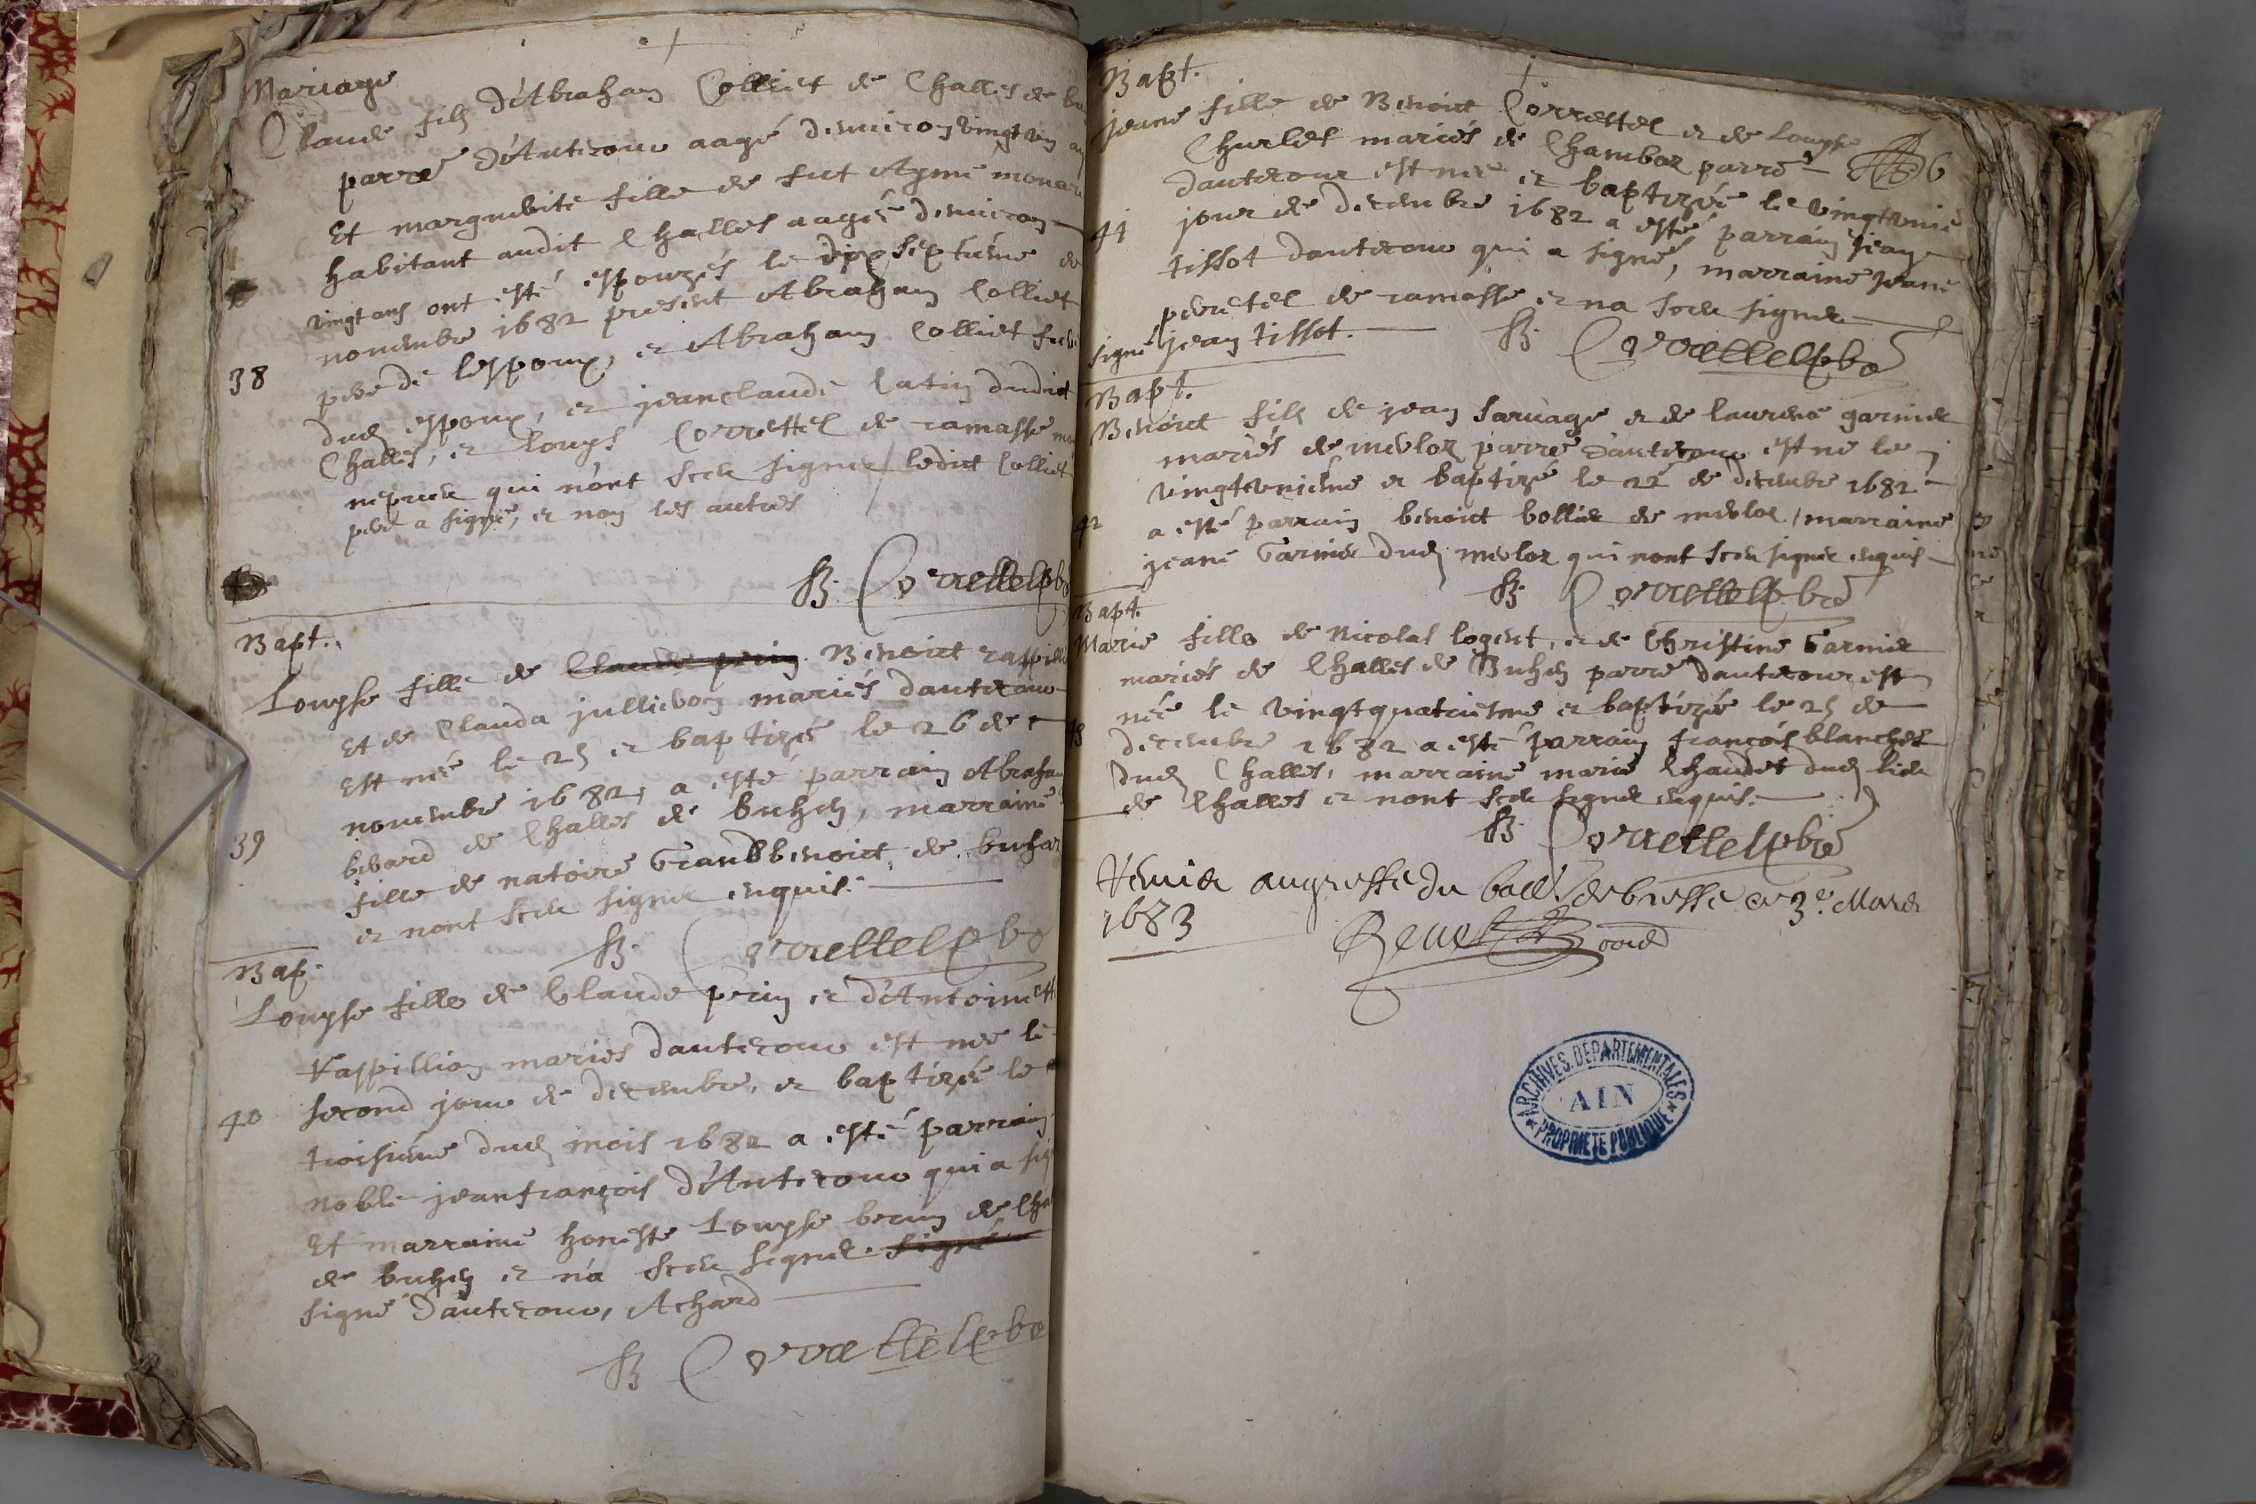 Mariage
Claude filz d'Abraham Colliet de Challes de
parre d'Antecour aagé denuiron vingt un
Et marguerite fille de fut Ayme
habitant audit Challes aagée denuiron
vingt ans ont esté espouzés le dix septiesme de
nouembre 1682 present Abraham Colliet
38
pere de lespoux, et Abraham Colliet
dud espoux, et jeanclaude Catin dudict
Challes, et Louys Correttel de ramasse
nepueu qui n'ont sceu signer / ledict Colliet
pere a signé, et non les autres
B. Correttel pbre
Bapt.
Louyse fille de Claude perin Benoict
Et de Clauda jullieron mariés dantecour
Est née le 25 et baptizée le 26 de
nouembre 1682, a esté parrain Abraham
39
berard de Challes de buhen, marraine
fille de natoire Grandbenoict de
et nont sceu signer enquis.
B. Correttel pbre
Bap.
Louyse fille de Claude perin et d'Antoinette
Rappillion mariés dantecour est née le
second jour de decembre, et baptizée le
40
troisiéme dud mois 1682 a esté parrain
noble jeanfrançois d'Antecour qui a
Et marraine honeste Louyse de
de buhen et n'a sceu signer. signé
signé Dantecour, Achard
B Correttel pbre
Bapt.
jeane fille de Benoict Correttel et de Louyse
Churlet mariés de Chamboz parre
6
dantecour est née et baptizée le vingtunie
jour de decembre 1682 a esté parrain jean
41
tissot dantecour qui a signé, marraine jeane
peretel de ramasse et na sceu signer
signé jean tissot.
B. Correttel pbre
Bapt.
Benoict filz de jean sauuage et de laurene garnier
mariés de meloz parre dantecour est né le
vingtuniéme et baptizé le 22 de decembre 1682
42
a esté parrain benoict bollier de meloz / marraine
jeane Garnier dud meloz qui nont sceu signer enquis
B. Correttel pbre
Bapt.
Marie fille de Nicolas logent, et de Christine Garnier
mariés de Challes de Buhen parre dantecour est
née le vingtquatriesme et baptizée le 25 de
decembre 1682 a esté parrain françois blanchet
dud Challes, marraine marie Chaudet dud lieu
de Challes et nont sceu signer enquis.
B. Correttel pbre
Remis au greffe du baill. de bresse ce 3e. Mars
1683
ARCHIVES DÉPARTEMENTALES
AIN
PROPRIÉTÉ PUBLIQUE